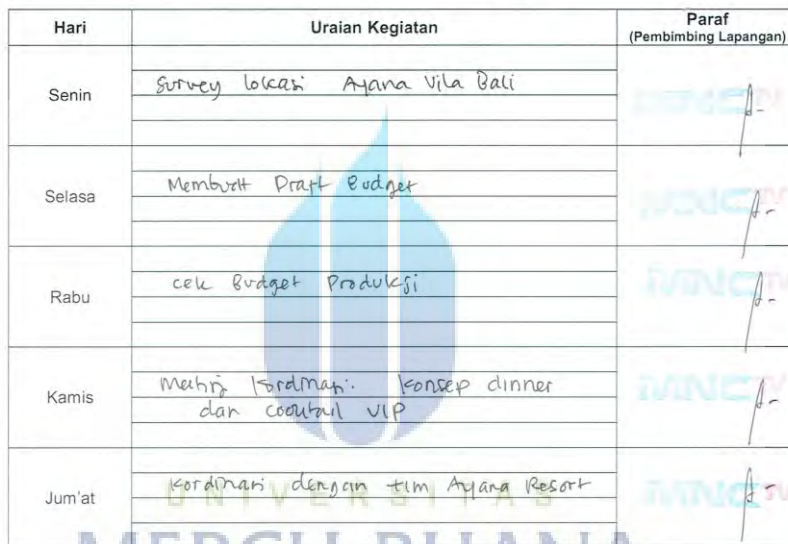 Hari Uraian Kegiatan Paraf
(Pembimbing Lapangan)
Senin Survey lokasi Ayana Vila Bali
Selasa Membuat Draft Budget
Rabu cek Budget Produksi
Kamis Meeting Kordinasi. Konsep dinner
dan cocktail VIP
Jum'at Kordinasi dengan tim Ayana Resort
UNIVERSITAS
MERCU BUANA